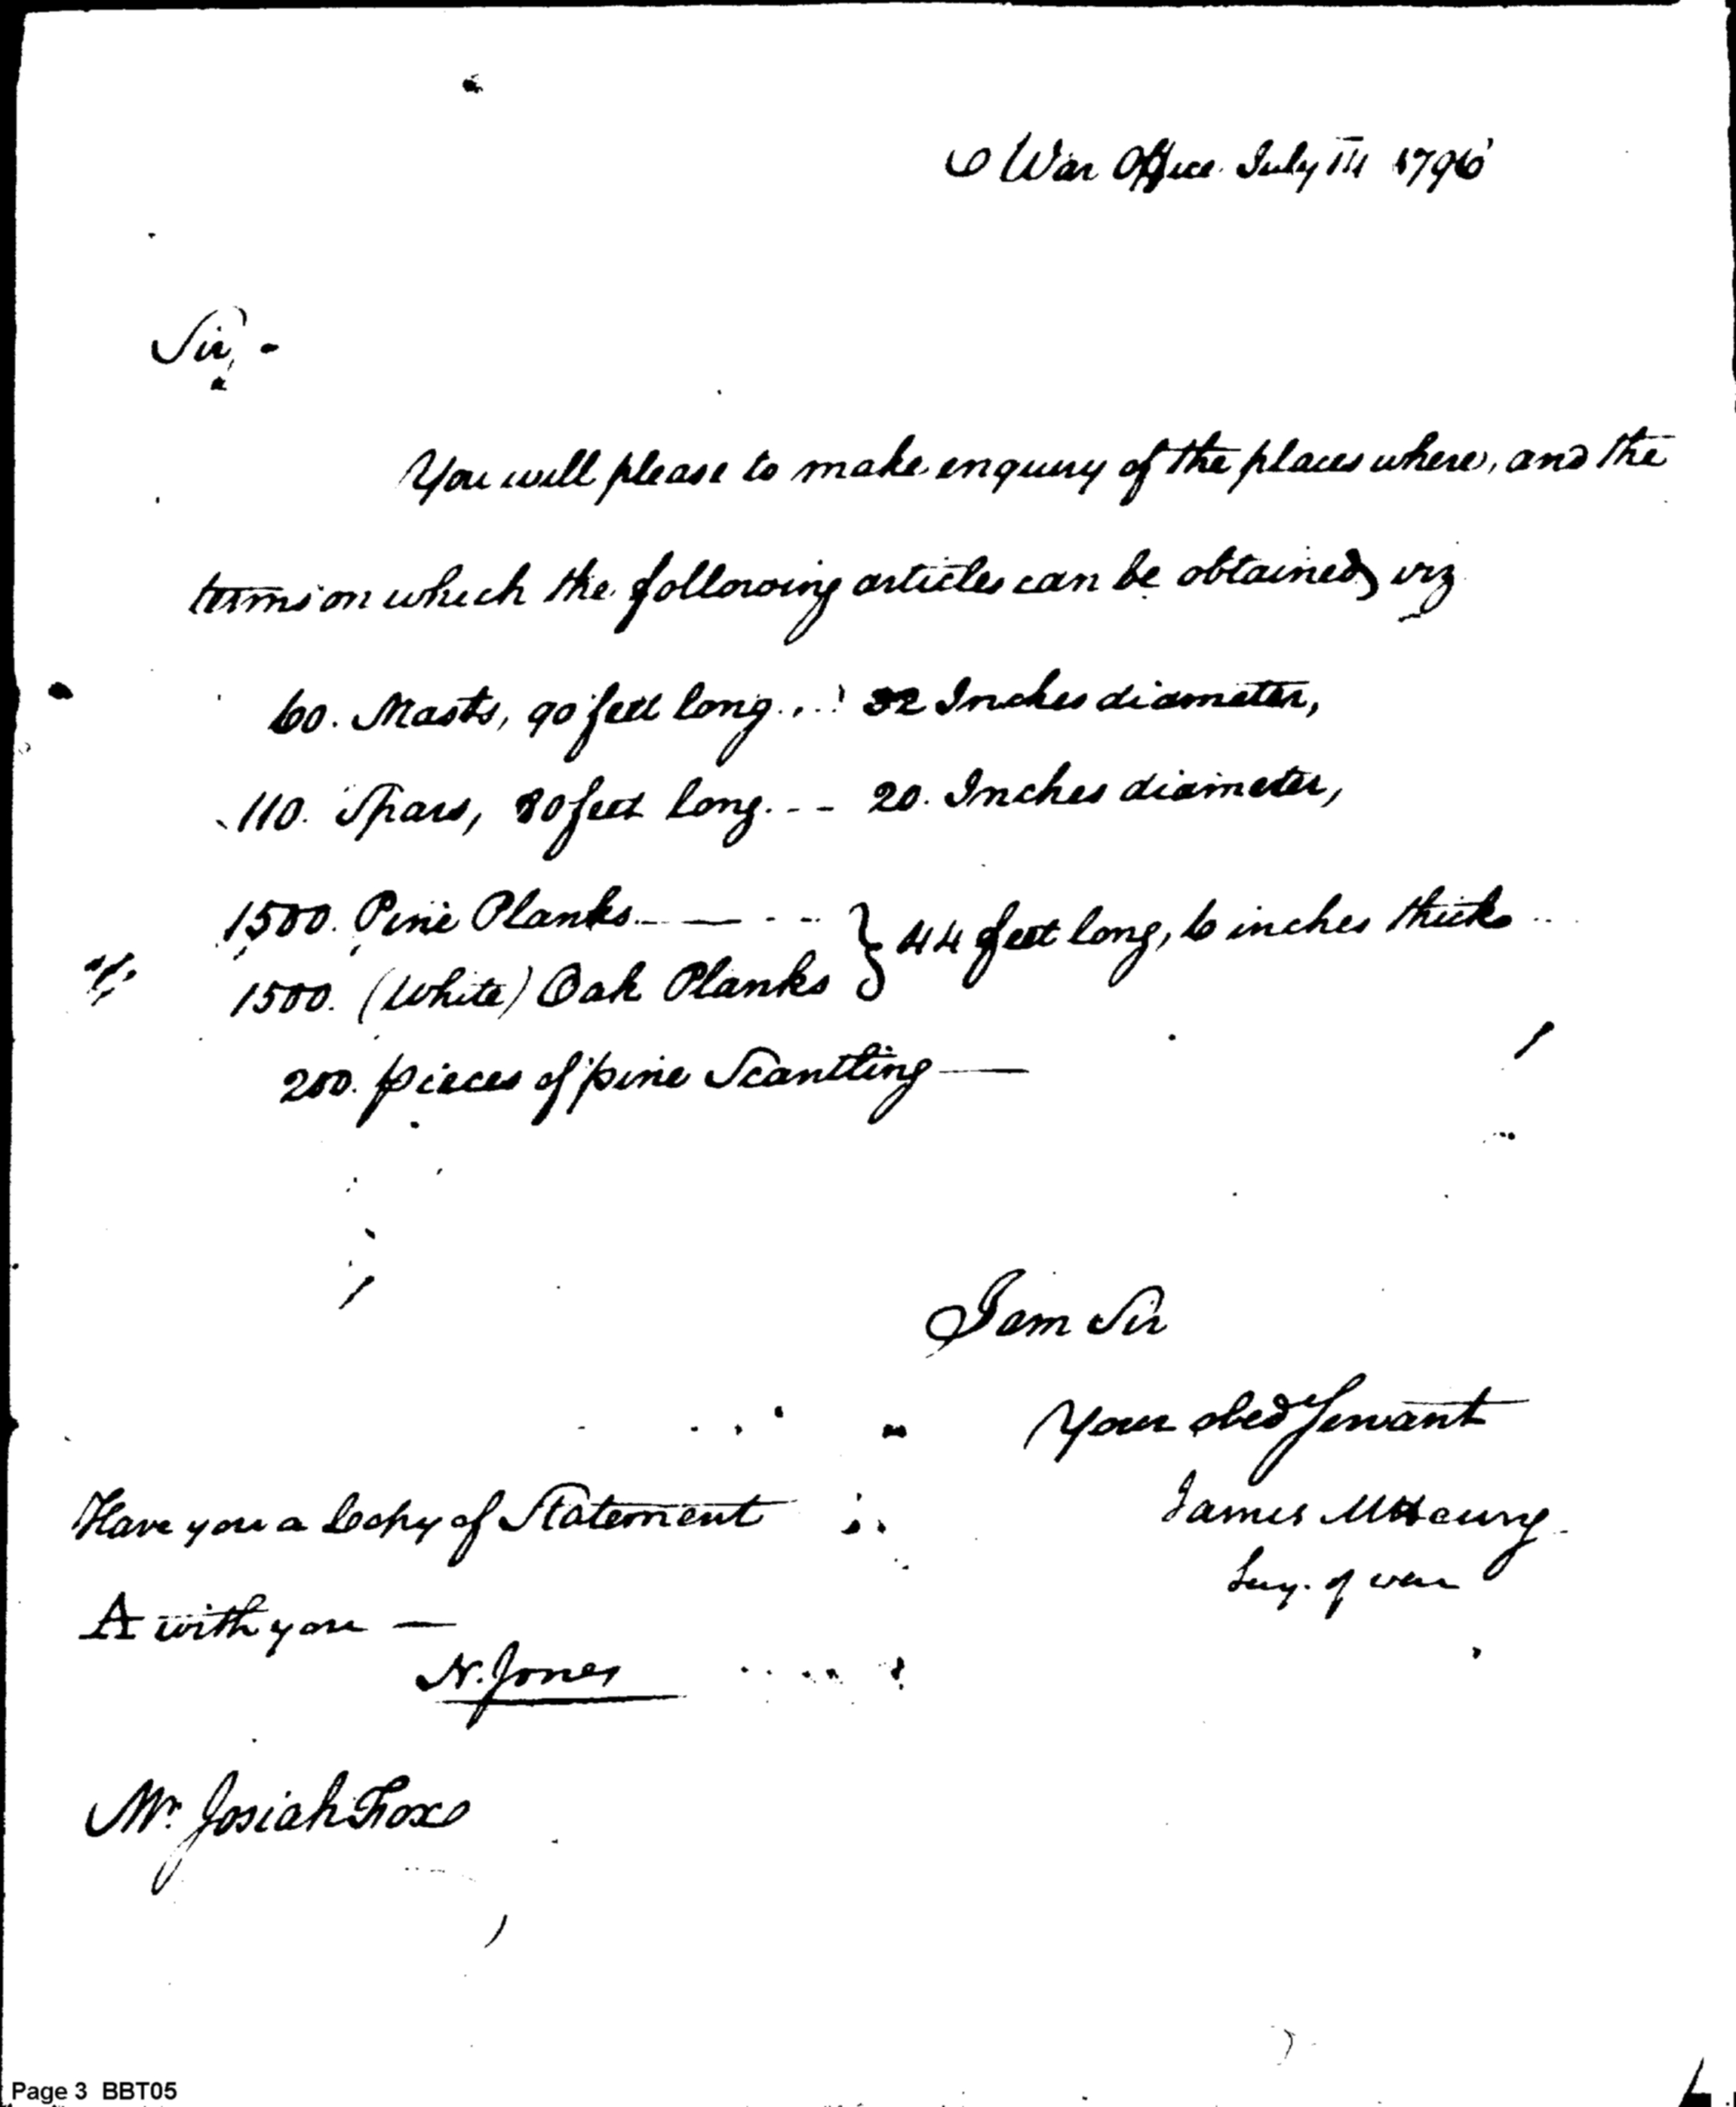 War Office July 14 1796
Sir, -
You will please to make enquiry of the places where, and the
terms on which the following articles can be obtained viz
60. Masts, 90 feet long... 32 Inches diameter,
110. Spars, 80 feet long. - - 20. Inches diameter,
1500. Pine Planks. — — - - } 44 feet long, 6 inches thick
1500. (White) Oak Planks
200. pieces of pine Scantling —
I am Sir
Your obed Servant
James McHenry
Secy. of war
Have you a Copy of Statement
A with you —
N. Jones
Mr. Josiah Fox
Page 3 BBT05